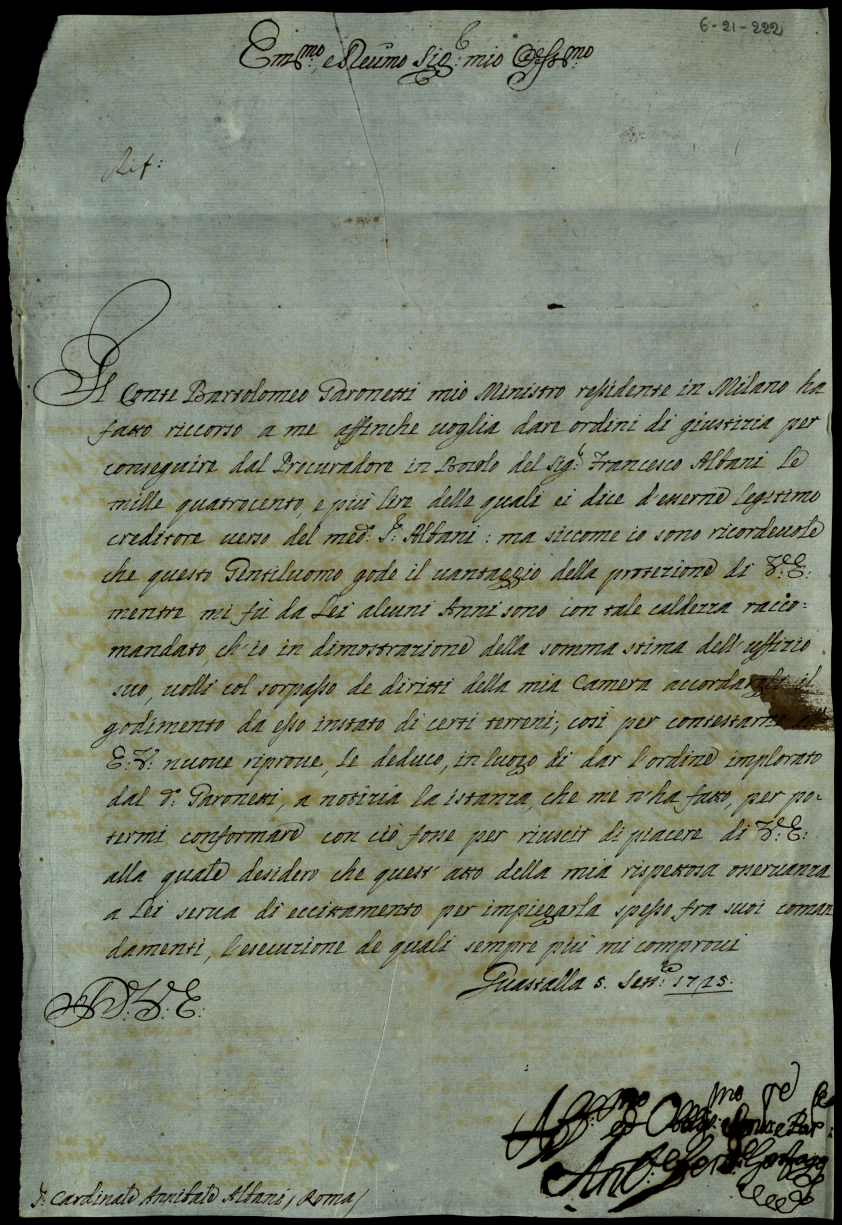 6-21-222
Em.mo e Reu.mo Sig.r mio Oss.mo
Rif:
Il Conte Bartolomeo Paronetti mio Ministro residente in Milano ha
fatto riccorso a me affinche voglia dare ordini di giustizia per
conseguire dal Procuradore in Bozolo del Sig.r Francesco Albani le
mille quatrocento, e più lire delle quali ei dice d'esserne legitimo
creditore verso del med.o S.r Albani: ma siccome io sono ricordeuole
che questo Gentiluomo gode il vantaggio della protezione di V.E:
mentre mi fù da Lei alcuni Anni sono con tale caldezza racco=
mandato, ch'io in dimostrazione della somma stima dell'uffizio
suo, volli col sorpasso de diritti della mia Camera accordargli il
godimento da esso instato di certi terreni; così per contestarne all'
E:V: nuove riprove, le deduco, in luogo di dar l'ordine implorato
dal d.o Paronetti, a notizia la istanza, che me n'ha fatto, per po-
termi conformare con ciò fosse per riuscir di piacere di V.E:
alla quale desidero che quest'atto della mia rispettosa osseruanza
a Lei serua di eccitamento per impiegarla spesso fra suoi coman
damenti, l'esecuzione de quali sempre più mi comprovi
Guastalla 5. Sett.e 1725.
D. V. E:
Aff.mo ed Obb.mo Ser.e e Par:
Ant.o Ferd.o Gonzaga
S.r Cardinale Annibale Albani / Roma /